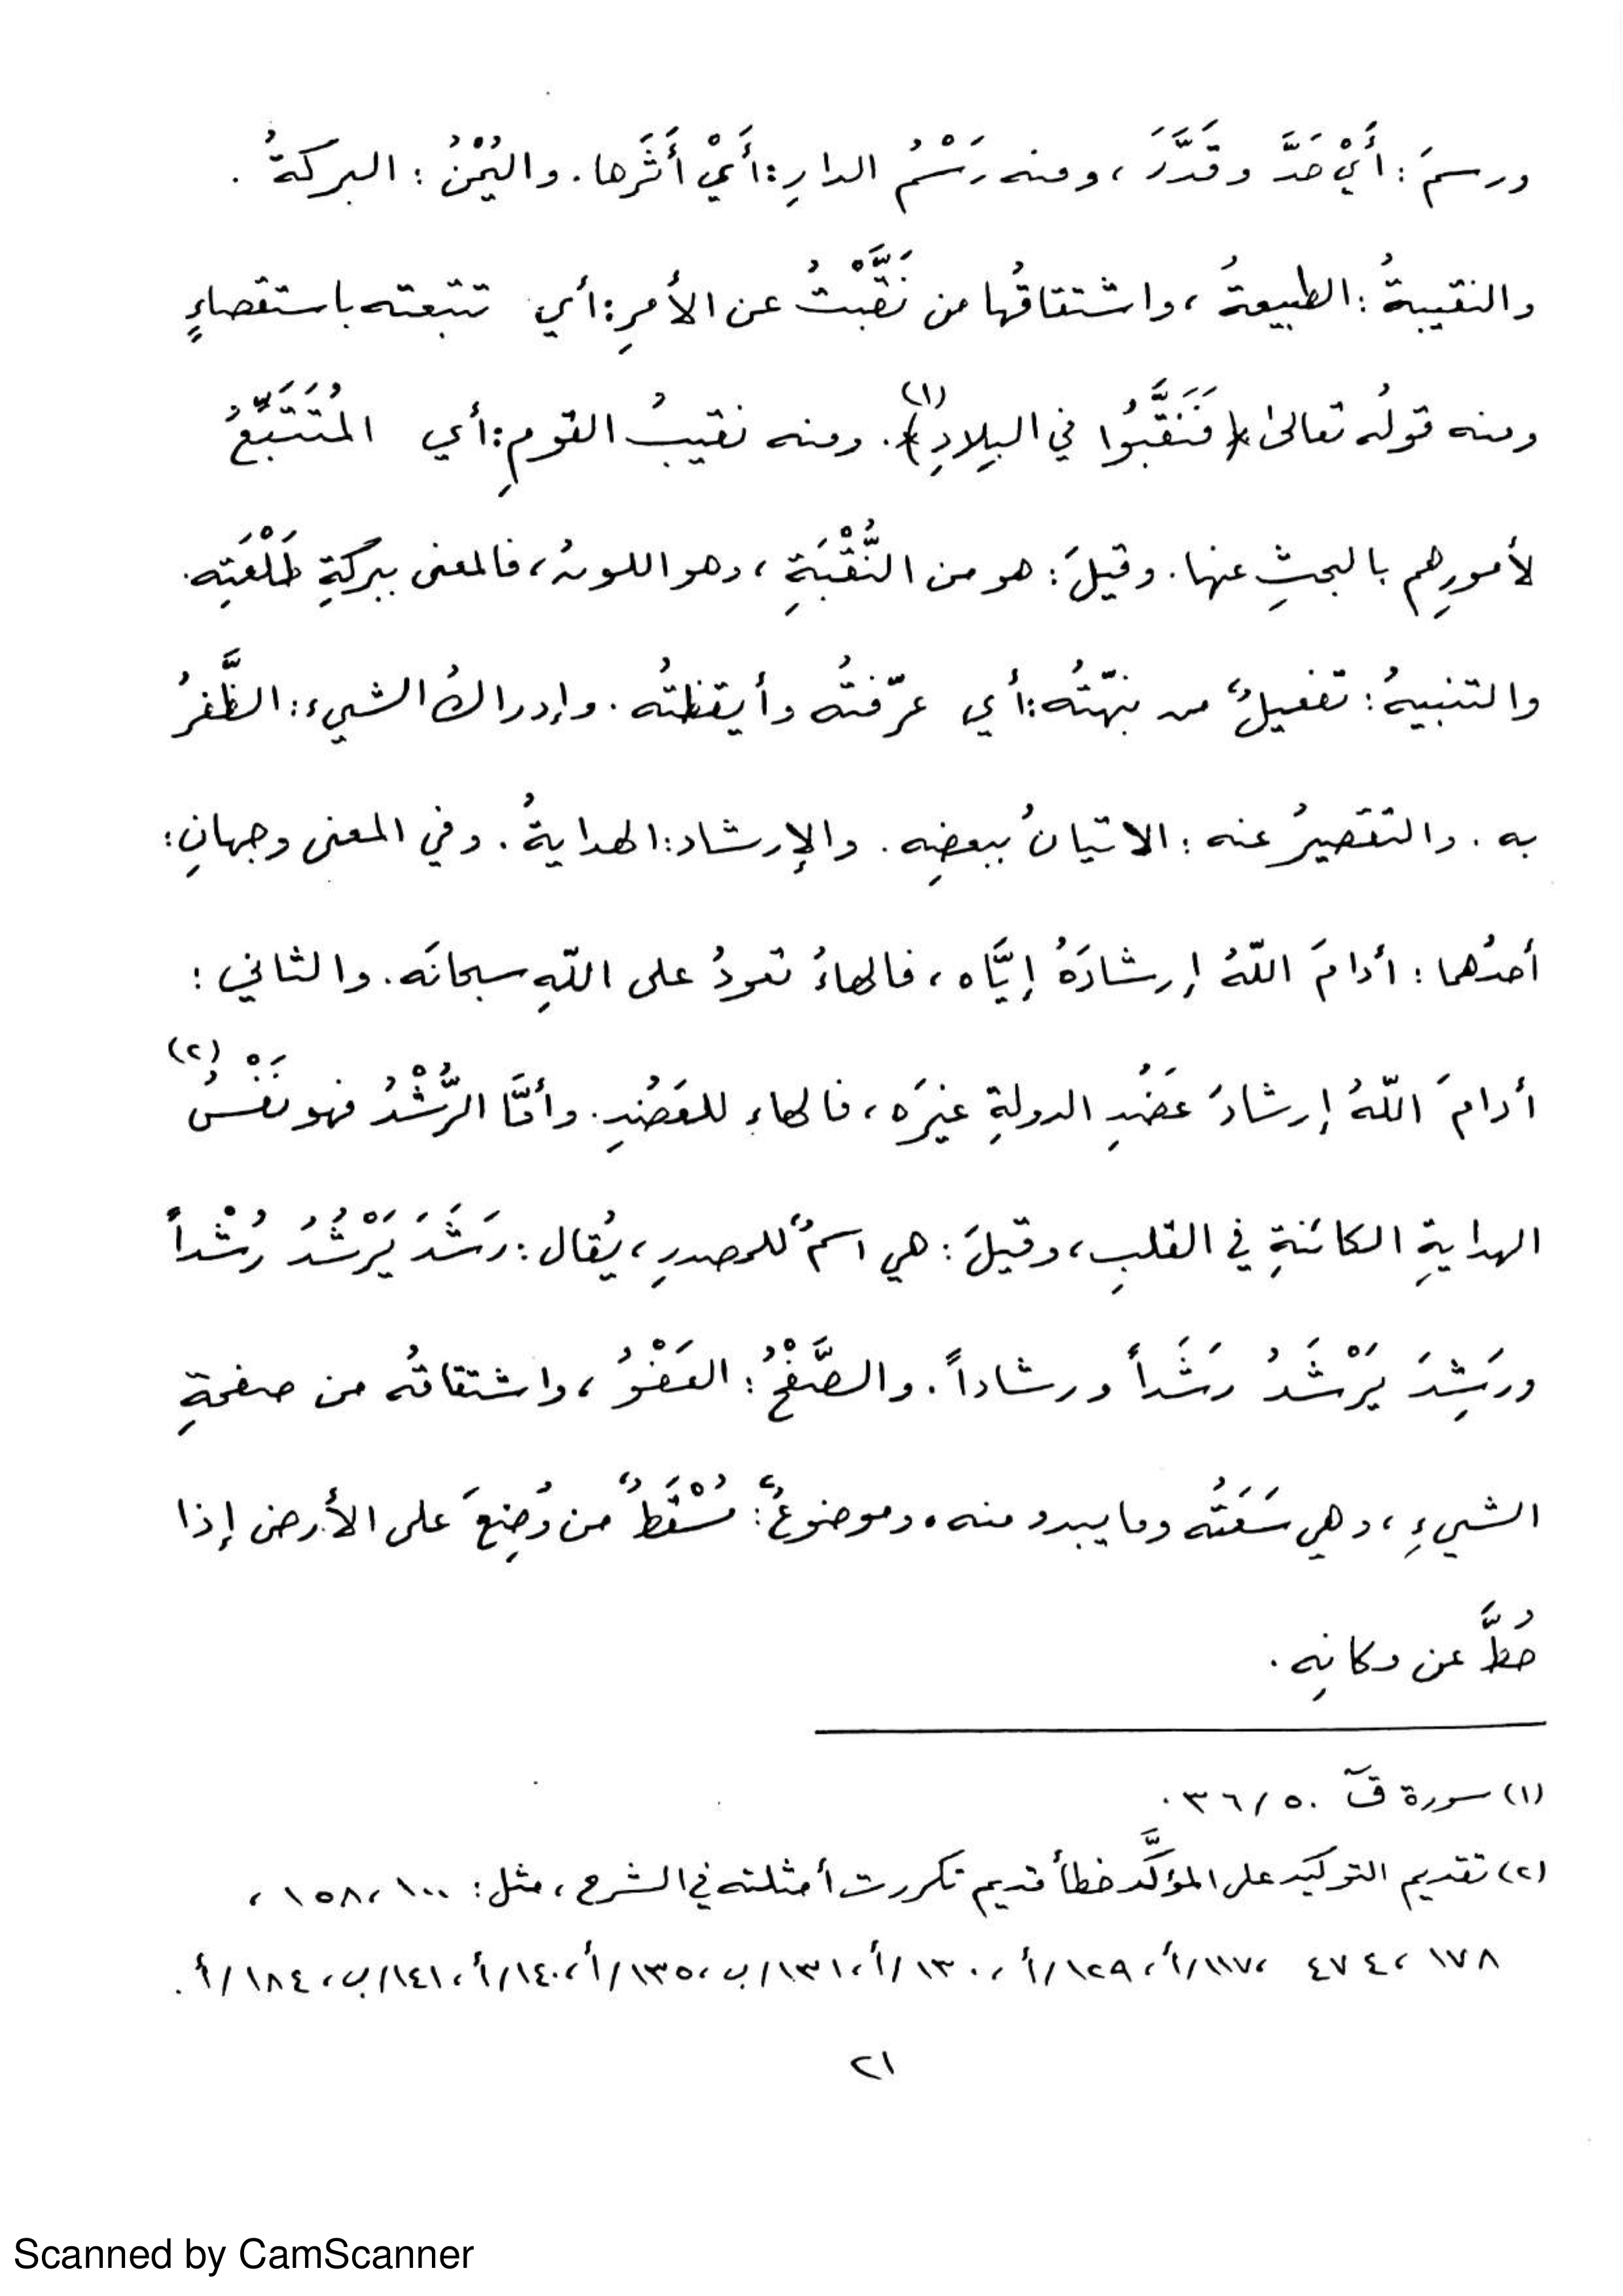 ورسمَ: أَيْ حَدَّ وقَدَّرَ، ومنه رَسْمُ الدارِ: أَيْ أَثَرها. واليُمْنُ: البركةُ.
والنقيبةُ: الطبيعةُ، واشتقاقُها من نَقَّبْتُ عن الأمرِ: أي تتبعته باستقصاءٍ
ومنه قولُه تعالىٰ ﴿فَنَقَّبُوا في البِلادِ﴾(١). ومنه نقيبُ القومِ: أي المُتَتَبِّعُ
لأمورِهم بالبحثِ عنها. وقيلَ: هو من النُّقْبَةِ، وهو اللونُ، فالمعنى ببركةِ طَلْعَتِه.
والتنبيهُ: تفعيلٌ من نبّهتُه: أي عرّفتُه وأيقظتُه. وإدراكُ الشيء: الظَّفرُ
به. والتقصيرُ عنه: الاتيانُ ببعضِه. والإرشاد: الهدايةُ. وفي المعنى وجهانِ:
أحدُهما: أدامَ اللّهُ إرشادَهُ إيَّاه، فالهاءُ تعودُ على اللّهِ سبحانَه. والثاني:
أدامَ اللّهُ إرشادَ عَضُدِ الدولةِ غيرَه، فالهاء للعَضُدِ. وأمَّا الرُّشْدُ فهو نَفْسُ(٢)
الهدايةِ الكائنةِ في القلبِ، وقيلَ: هي اسمٌ للمصدرِ، يُقال: رَشَدَ يَرْشُدُ رُشْداً
ورَشِدَ يَرْشَدُ رَشَداً ورشاداً. والصَّفْحُ: العَفْوُ، واشتقاقُه من صفحةِ
الشيءِ، وهي سَعَتُه وما يبدو منه. وموضوعٌ: مُسْقَطٌ من وُضِعَ على الأرض إذا
حُطَّ عن مكانِه.
(١) سورة قۤ ٣٦/٥٠.
(٢) تقديم التوكيد على المؤكَّد خطأ قديم تكررت أمثلته في الشرح، مثل: ١٠٠، ١٥٨،
١٧٨، ٤٧٤ ،١١٧/أ، ١٢٩/أ، ١٣٠/أ، ١٣١/ب، ١٣٥/أ، ١٤٠/أ، ١٤١/ب، ١٨٤/أ.
٢١
Scanned by CamScanner